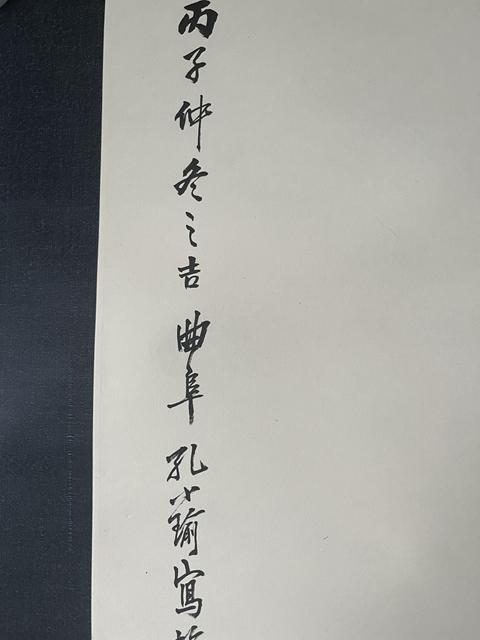 丙子仲冬之吉曲阜孔小瑜寫